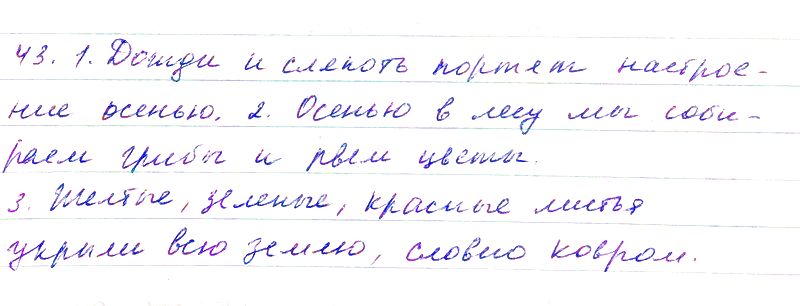 43. 1. Дожди и слякоть портят настрое-
ние осенью. 2. Осенью в лесу мы соби-
раем грибы и рвем цветы.
3. Желтые, зеленые, красные листья
укрыли всю землю, словно ковром.